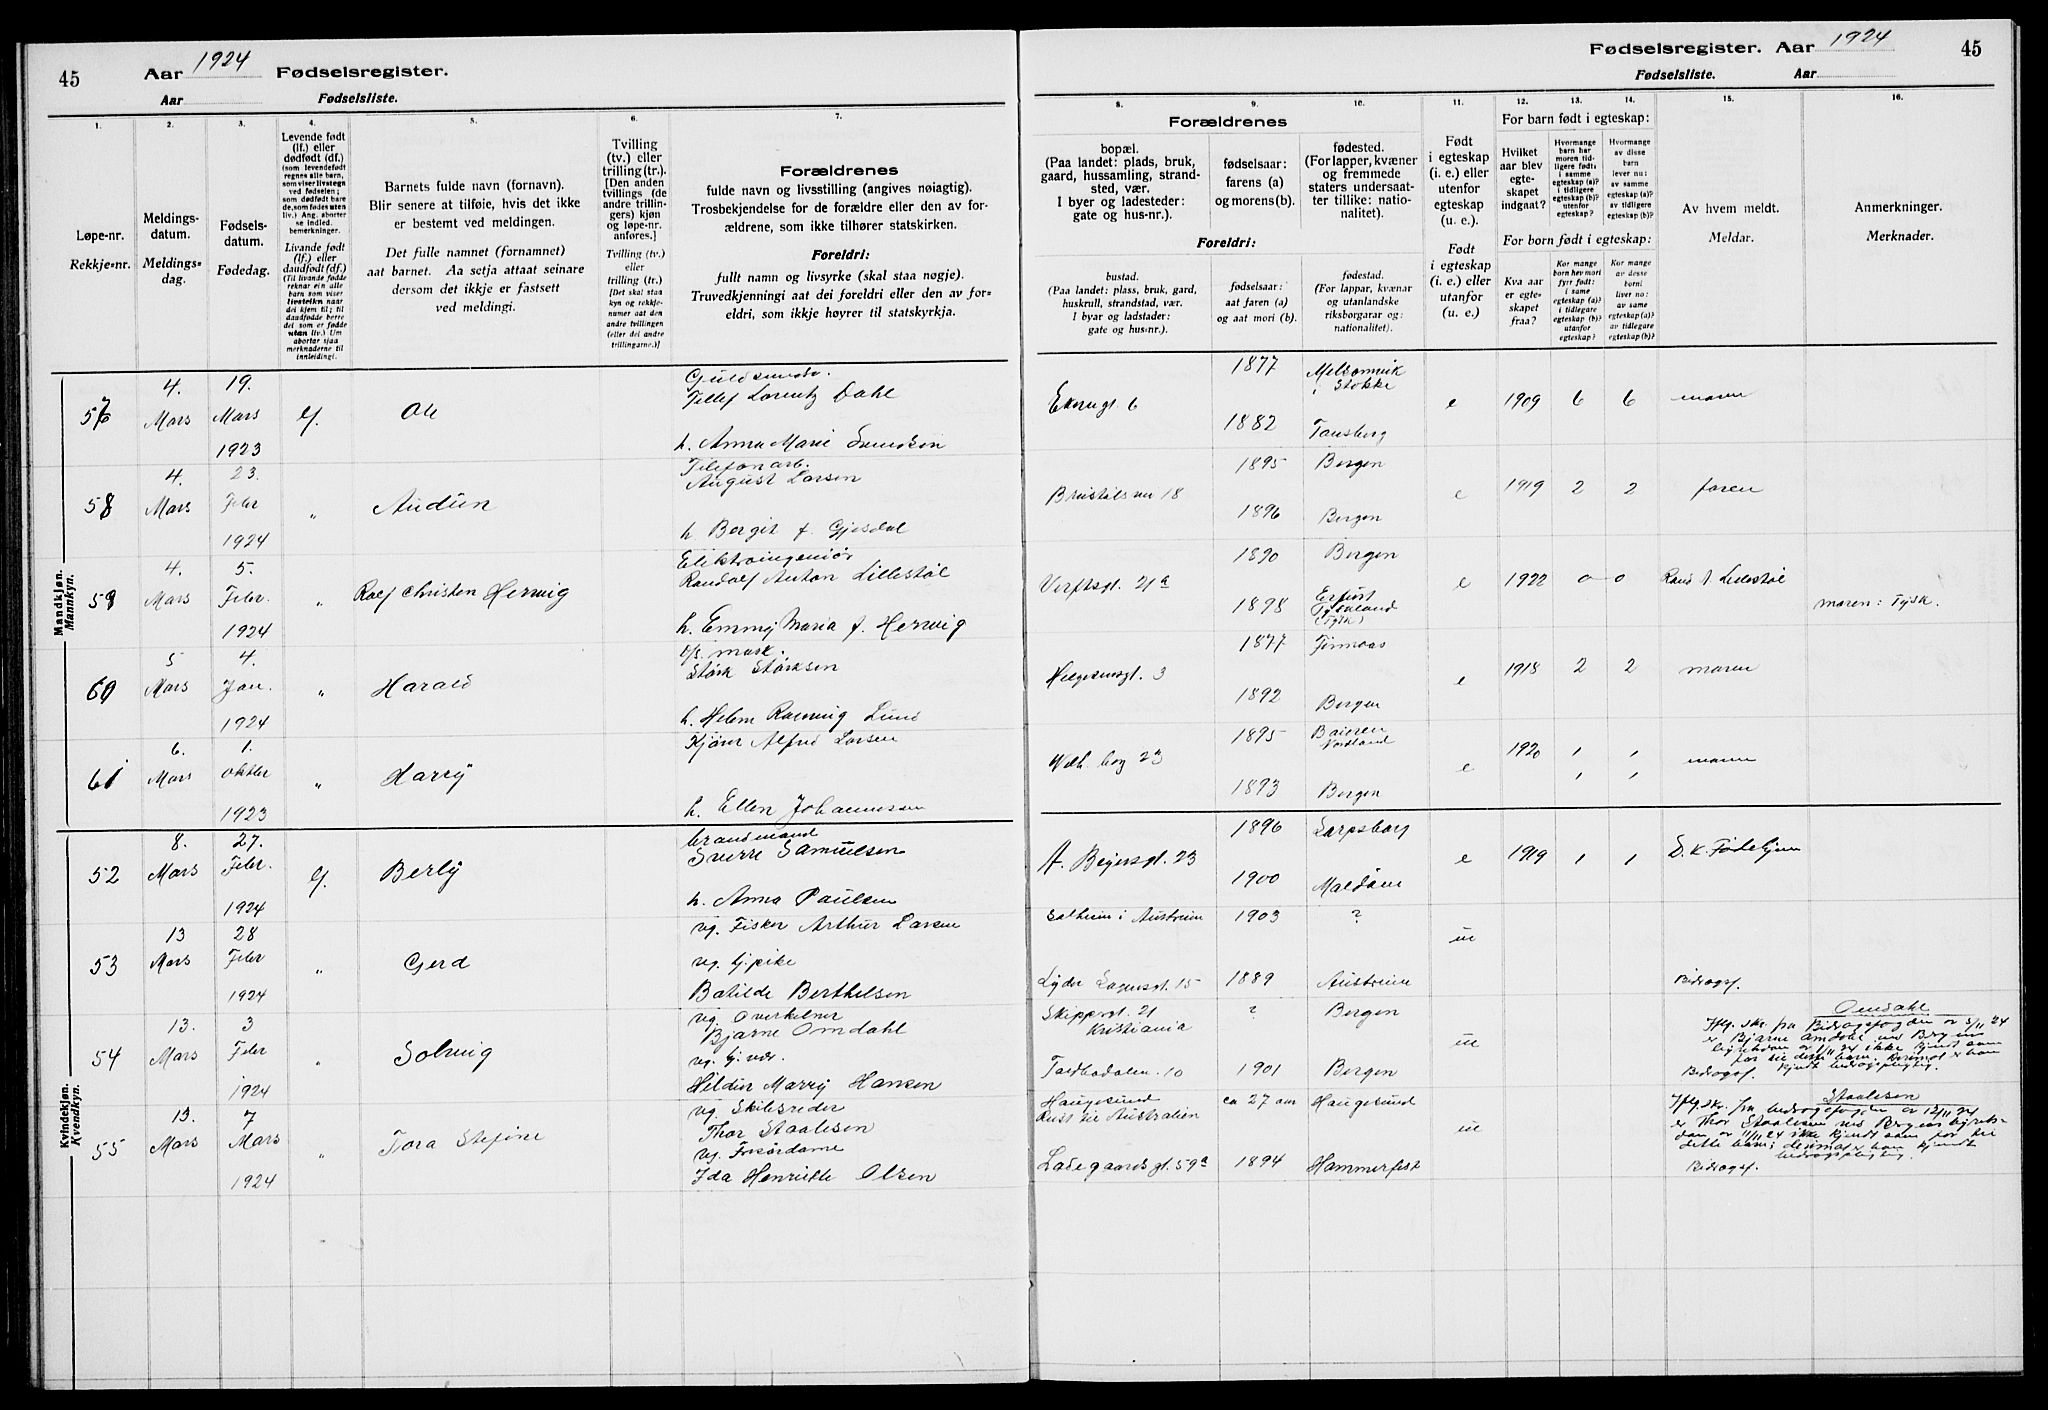 45
Aar 1924 Fødselsregister.
Aar Fødselsliste.
1.
2.
3.
4.
5.
6.
7.
Løpe-nr.
Rekkje-nr.
Meldings-
datum.
Meldings-
dag.
Fødsels-
datum.
Fødedag.
Levende født
(lf.) eller
dødfødt (df.)
(som levendefødt
regnes alle barn,
som viser livstegn
ved fødselen;
som dødfødt bare
de, som fødes uten
liv.) Ang. aborter
se indled.
bemerkninger.
Livande født
(lf.) eller
daudfødt (df.)
(Til livande fødde
reknar ein alle
barn som viser
livsteikn naar
dei kjem til; til
daudfødde berre
dei som er fødde
utan liv.) Um
abortar sjaa
merknaderne til
innleidingi.
Barnets fulde navn (fornavn).
Blir senere at tilføie, hvis det ikke
er bestemt ved meldingen.
Det fulle namnet (fornamnet)
aat barnet. Aa setja attaat seinare
dersom det ikkje er fastsett
ved meldingi.
Tvilling
(tv.) eller
trilling (tr.).
[Den anden
tvillings (de
andre trillin-
gers) kjøn
og løpe-nr.
anføres.]
Tvilling (tv.)
eller
trilling (tr.)
[Det skal staa
kyn og rekkje-
numer aat den
andre tvillingen
(eller dei andre
trillingarne.)]
Forældrenes
fulde navn og livsstilling (angives nøiagtig).
Trosbekjendelse for de forældre eller den av for-
ældrene, som ikke tilhører statskirken.
Foreldri:
fullt namn og livsyrke (skal staa nøgje).
Truvedkjenningi aat dei foreldri eller den av for-
eldri, som ikkje høyrer til statskyrkja.
Mandkjøn.
Mannkyn.
57
4.
Mars
19.
Mars
1923
lf.
Ole
Tellef Lorentz Dahl
h. Anna Marie Svendsen
58
4.
Mars
23.
Febr
1924
"
Audun
Telefonarb.
August Larsen
h Bergit f. Gjesdal
59
4.
Mars
5.
Febr.
1924
"
Rolf Christen Herwig
Elektroingeniør
Randolf Anton Lillestøl
h. Emmy Maria f. Herwig
60
5
Mars
4.
Jan.
1924
"
Harald
Størk Størksen
h. Helene Rasmug Lund
61
6.
Mars
1.
Oktbr
1923
"
Harry
Kjører Alfred Larsen
h. Ellen Johannessen
Kvindekjøn.
Kvendkyn.
52
8.
Mars
27.
Febr.
1924
lf.
Berly
brandmand
Sverre Samuelsen
h. Anna Paulsen
53
13
Mars
28
Febr
1924
"
Gerd
ug. Fisker Arthur Larsen
ug. tj.pike
Batilde Berthelsen
54
13.
Mars
3
Febr
1924
"
Solveig
ug. Overkelner
Bjarne Omdahl
ug. hj. vær.
Hildur Marry Hansen
55
13.
Mars
7
Mars
1924
"
Tora Stefine
ug. Skibsreder
Thor Staalesen
ug. Frisørdame
Ida Henriette Olsen
Fødselsregister. Aar 1924
45
Fødselsliste. Aar
8.
9.
10.
11.
12.
13.
14.
15.
16.
Forældrenes
bopæl.
(Paa landet: plads, bruk,
gaard, hussamling, strand-
sted, vær.
I byer og ladesteder:
gate og hus-nr.).
fødselsaar:
farens (a)
og morens (b).
fødested.
(For lapper, kvæner
og fremmede
staters undersaat-
ter tillike: natio-
nalitet).
Foreldri:
bustad.
(Paa landet: plass, bruk, gard,
huskrull, strandstad, vær.
I byar og ladstader:
gate og hus-nr.).
fødselsaar:
aat faren (a)
og aat mori (b).
fødestad.
(For lappar, kvænar
og utanlandske
riksborgarar og:
nationalitet).
Født
i egteskap
(i. e.) eller
utenfor
egteskap
(u. e.).
Født
i egteskap
(i. e.) eller
utanfor
(u. e.)
For barn født i egteskap:
Hvilket
aar blev
egte-
skapet
indgaat?
Hvormange
barn har
moren tid-
ligere født:
i samme
egteskap (a)?
i tidligere
egteskap (b)?
utenfor
egteskap?
Hvormange
av disse
barn
lever nu:
av samme
egteskap (a)?
av tidligere
egteskap (b)?
For born født i egteskap:
Kva aar
er egte-
skapet
fraa?
Kor mange
born hev mori
fyrr født:
i same
egteskap (a)?
i tidlegare
egteskap (b)?
utanfor
egteskap?
Kor mange
av desse
borni
liver no:
av same
egteskap (a)?
av tidlegare
egteskap (b)?
Av hvem meldt.
Meldar.
Anmerkninger.
Merknader.
Ekrengt. 6
1877
Melsomvik
i Stokke
1882
Tønsberg
e
1909
6
6
moren
18
1895
Bergen
1896
Bergen
e
1919
2
2
faren
Verftsgt. 21a
1890
Bergen
1898
Erfurt
Tyskland
(Tysk)
e
1922
0
0
Rand. Lillestøl
moren: Tysk.
Helgesensgt. 3
1877
1892
Bergen
e
1918
2
2
moren
23
1895
Nordland
1893
Bergen
e
1920
1
1
1
1
moren
A. Beyersgt. 23
1896
Sarpsborg
1900
Maldøen
e
1919
1
1
Solheim i Austrheim
1903
?
ue
Lyder Sagensgt. 15
1889
Austrheim
Bidragsf.
Skippergt. 21
Kristiania
?
Bergen
ue
Toldbodalm. 10
1901
Bergen
Bidragsf.
Omdahl
Iflg. skr. fra Bidragsfogden av 5/11 24
er Bjarne Omdahl ved Bergens
byretsdom av 1/11 24 ikke kjendt som
far til dette barn. Derimot er han
kjendt bidragspligtig.
Haugesund
Reist til Australien
ca 27 aar
Haugesund
ue
Ladegaardsgt. 59a
1894
Hammerfest
Bidragsf.
Staalesen
Iflg. skr. fra bidragsfogden av 12/11 24
er Thor Staalesen ved Bergens byrets-
dom av 11/11 24 ikke kjendt som far til
dette barn; derimot er han kjendt
bidragspligtig.